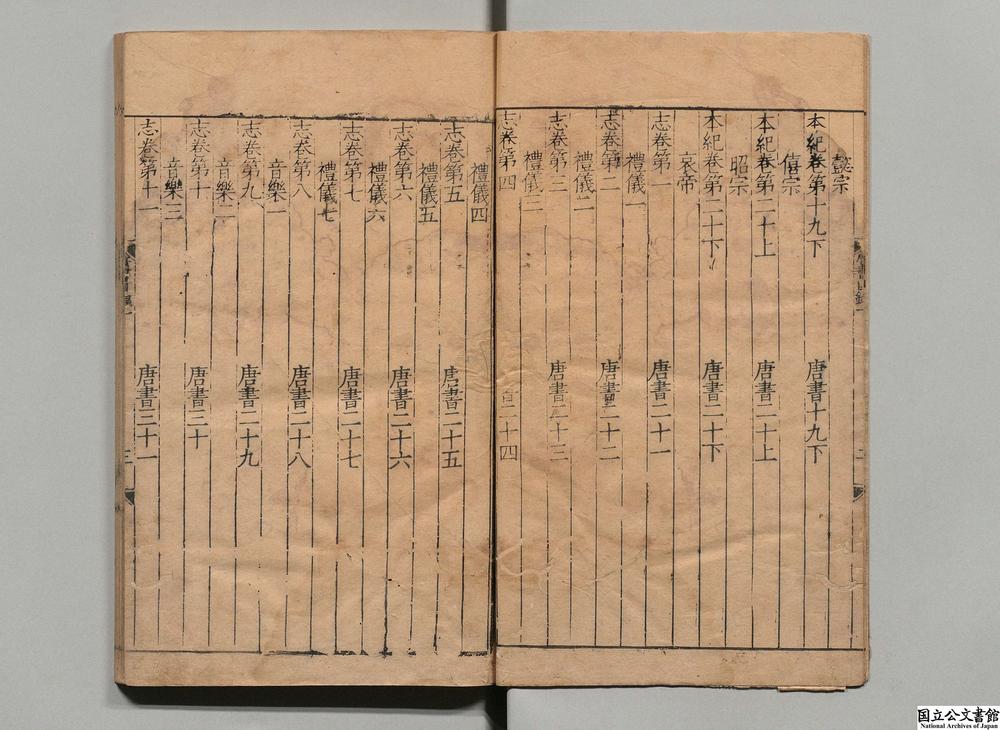 懿宗
本紀卷第十九下　唐書十九下
僖宗
本紀卷第二十上　唐書二十上
昭宗
本紀卷第二十下　唐書二十下
哀帝
志卷第一　唐書二十一
禮儀一
志卷第二　唐書二十二
禮儀二
志卷第三　唐書二十三
禮儀三
志卷第四　書二十四
禮儀四
志卷第五　唐書二十五
禮儀五
志卷第六　唐書二十六
禮儀六
志卷第七　唐書二十七
禮儀七
志卷第八　唐書二十八
音樂一
志卷第九　唐書二十九
音樂二
志卷第十　唐書三十
音樂三
志卷第十一　唐書三十一
国立公文書館
National Archives of Japan